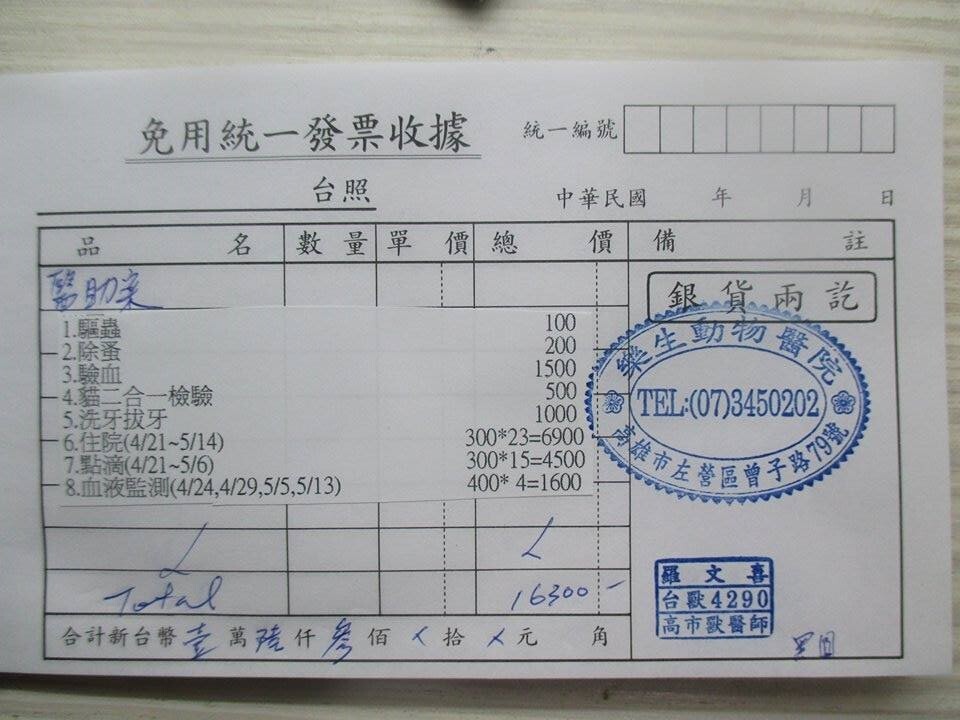 免用統一發票收據
統一編號
台照
中華民國 年 月 日
品名 數量 單價 總價 備註
醫助案
銀貨兩訖
1.驅蟲 100
2.除蚤 200
3.驗血 1500
4.貓二合一檢驗 500
5.洗牙拔牙 1000
6.住院(4/21~5/14) 300*23=6900
7.點滴(4/21~5/6) 300*15=4500
8.血液監測(4/24,4/29,5/5,5/13) 400* 4=1600
樂生動物醫院
TEL:(07)3450202
高雄市左營區曾子路79號
Total 16300-
羅文喜
台獸4290
高市獸醫師
合計新台幣壹萬陸仟參佰 拾 元 角